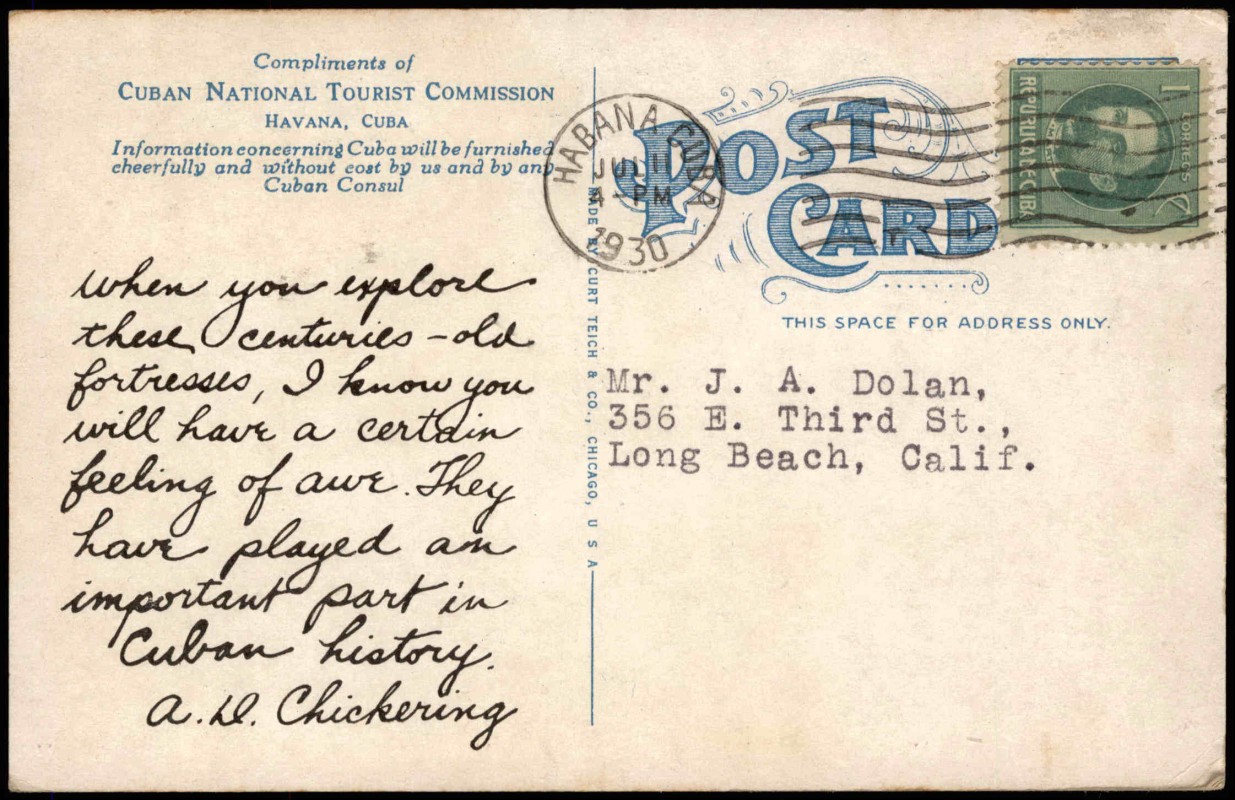 Compliments of
CUBAN NATIONAL TOURIST COMMISSION
HAVANA, CUBA
Information concerning Cuba will be furnished
cheerfully and without cost by us and by any
Cuban Consul
when you explore
these centuries-old
fortresses, I know you
will have a certain
feeling of awe. They
have played an
important part in
Cuban history.
A. D. Chickering
MADE BY CURT TEICH & CO., CHICAGO, U S A
HABANA CUBA
JUL 11
4 - PM
1930
POST
CARD
REPUBLICA DE CUBA
1
CORREOS
C
THIS SPACE FOR ADDRESS ONLY.
Mr. J. A. Dolan,
356 E. Third St.,
Long Beach, Calif.